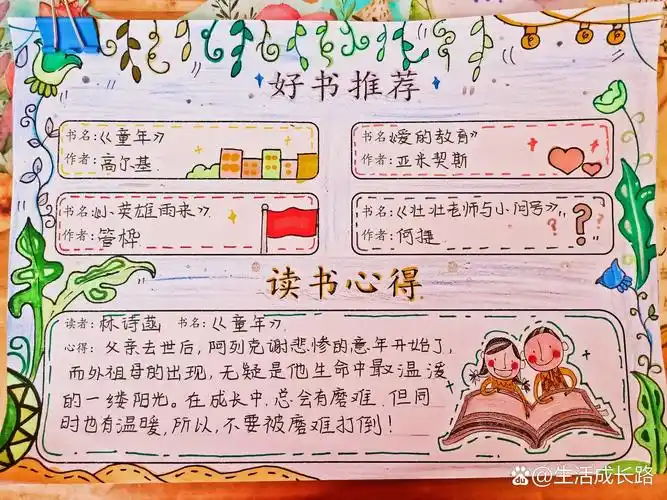 好书推荐
书名:《童年》
作者:高尔基
书名:《爱的教育》
作者:亚米契斯
书名:《小英雄雨来》
作者:管桦
书名:《壮壮老师与小问号》
作者:何捷
读书心得
读者:林诗涵 书名:《童年》
心得:父亲去世后,阿列克谢悲惨的意年开始了,
而外祖母的出现,无疑是他生命中最温暖
的一缕阳光。在成长中,总会有磨难,但同
时也有温暖,所以,不要被磨难打倒!
百度@生活成长路